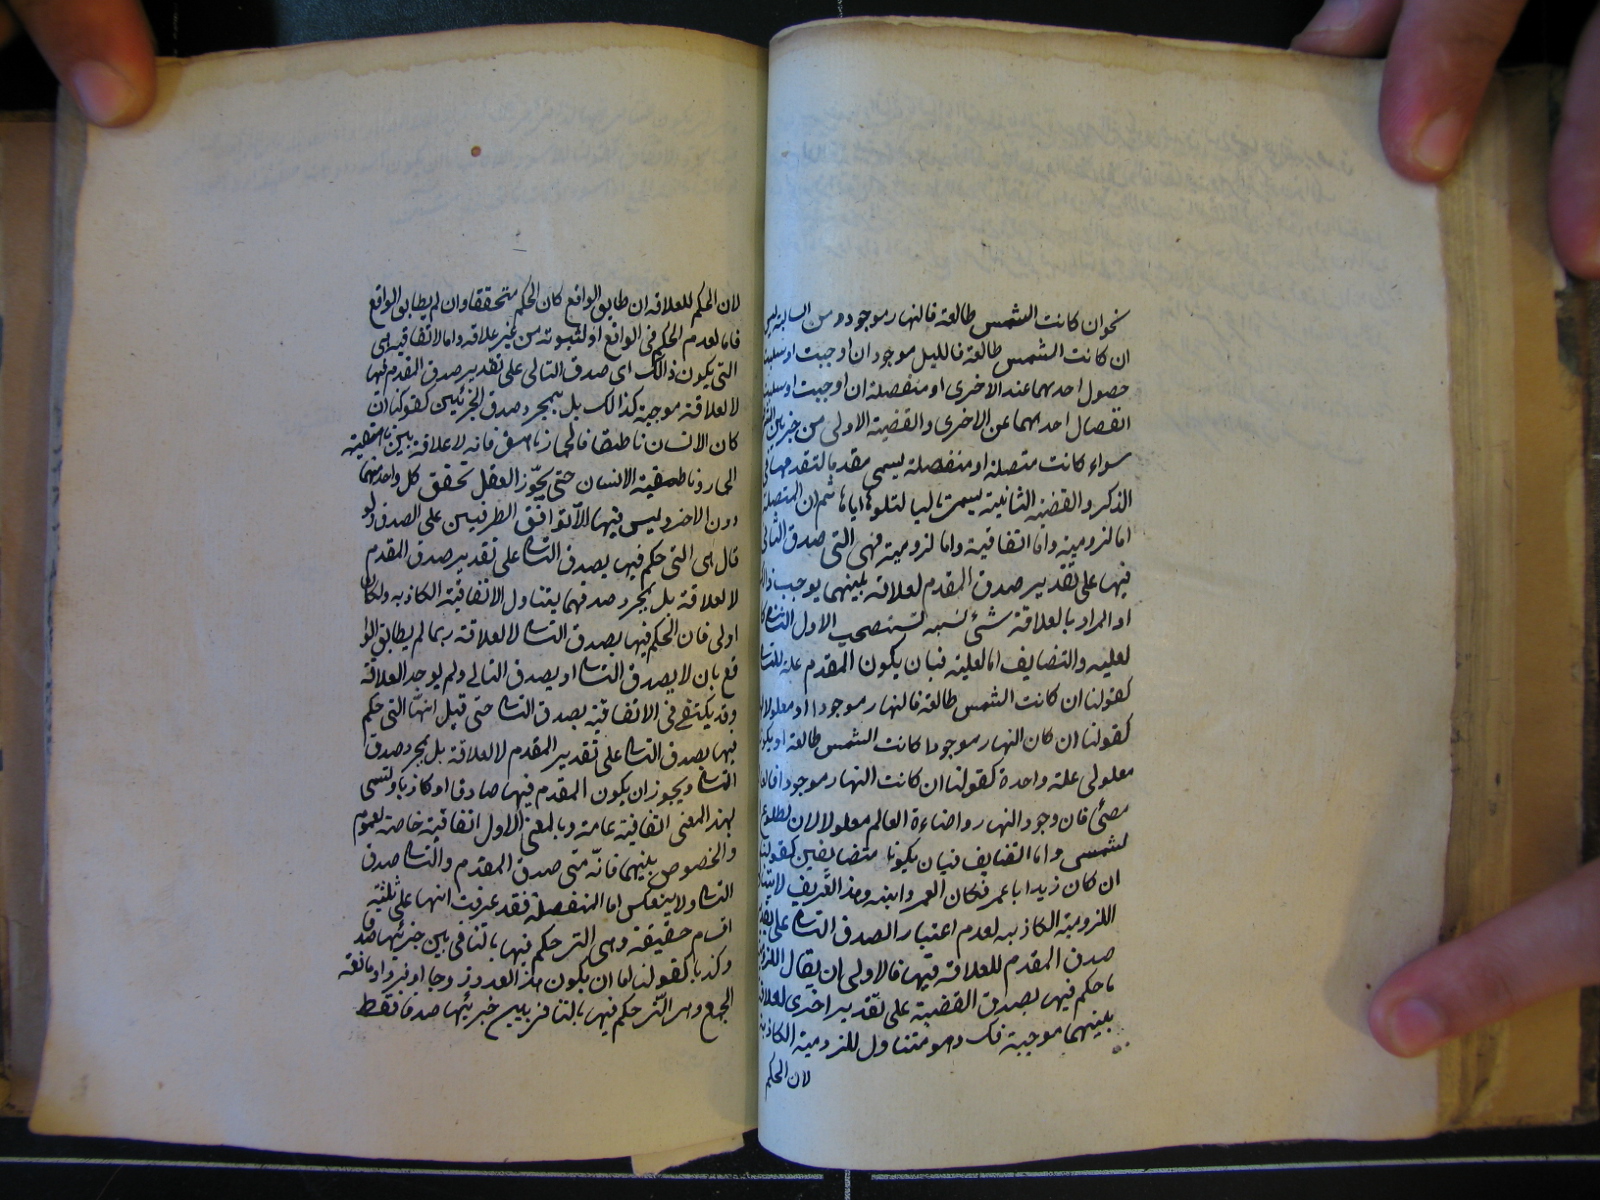 نحو ان كانت الشمس طالعة فالنهار موجود ومن السالبة ليس
ان كانت الشمس طالعة فالليل موجود ان اوجبت او سلبت
حصول احدهما عند الاخرى او منفصلة ان اوجبت او سلبت
انفصال احدهما عن الاخرى والقضية الاولى من جزئين
سواء كانت متصلة او منفصلة يسمى مقدما لتقدمها فى
الذكر والقضية الثانية يسمى تاليا لتلوها اياها ثم ان المتصلة
اما لزومية واما اتفاقية واما لزومية فهى التى صدق التالى
فيها على تقدير صدق المقدم لعلاقة بينهما يوجب ذلك
او المراد بالعلاقة شئ بسببه يستصحب الاول الثانى كا
لعلية والتضايف اما العلية فبان يكون المقدم علة للتالى
كقولنا ان كانت الشمس طالعة فالنهار موجود او معلولا له
كقولنا ان كان النهار موجودا كانت الشمس طالعة او يكونا
معلولى علة واحدة كقولنا ان كانت النهار موجودا فالعالم
مضئ فان وجود النهار واضاءة العالم معلولان لطلوع
لشمس واما التضايف فبان يكونا متضايفين كقولنا
ان كان زيد ابا عمر فكان العمر وابنه وهذا التعريف لا يتناول
اللزومية الكاذبة لعدم اعتبار الصدق التالى على تقدير
صدق المقدم للعلاقة فيها فالاولى ان يقال اللزومية
ما حكم فيها بصدق القضية على تقدير اخرى لعلاقة
بينهما موجبة فك وهو متناول للزومية الكاذبة
لان الحكم
لان الحكم للعلاقة ان طابق الواقع كان الحكم متحققا وان لم يطابق الواقع
فاما لعدم الحكم فى الواقع او لثبوته من غير علاقة واما الاتفاقية هى
التى يكون ذلك اى صدق التالى على تقدير صدق المقدم فيها
لا لعلاقة موجبة كذالك بل بمجرد صدق الجزئين كقولنا ان
كان الانسان ناطقا فالحمار ناهق فانه لا علاقة بين ناهقية
الحمار وناطقية الانسان حتى يجوّز العقل تحقق كل واحد منهما
دون الاخر وليس فيها الا توافق الطرفين على الصدق ولو
قال هى التى حكم فيها بصدق التالى على تقدير صدق المقدم
لا لعلاقة بل بمجرد صدقهما يتناول الاتفاقية الكاذبه ولكان
اولى فان الحكم فيها بصدق التالى لا لعلاقة ربما لم يطابق الوا
قع بان لا يصدق التالى او يصدق التالى ولم يوجد العلاقة
وقد يكتفى فى الاتفاقية بصدق التالى حتى قيل انها التى حكم
فيها بصدق التالى على تقدير المقدم لا لعلاقة بل بمجرد صدق
التالى ويجوز ان يكون المقدم فيها صادقا او كاذبا وتسمى
بهذ المعنى اتفاقية عامة وبالمعنى الاول اتفاقية خاصة لعموم
والخصوص بينهما فانه متى صدق المقدم والتالى صدق
التالى ولا ينعكس اما المنفصلة فقد عرفت انها على ثلثة
اقسام حقيقة وهى التى حكم فيها بالتنافى بين جزئيها صدقا
وكذبا كقولنا اما ان يكون هذ العدد زوجا او فردا او مانعة
الجمع وهى التى حكم فيها بالتنافى بين جزئيها صدقا فقط